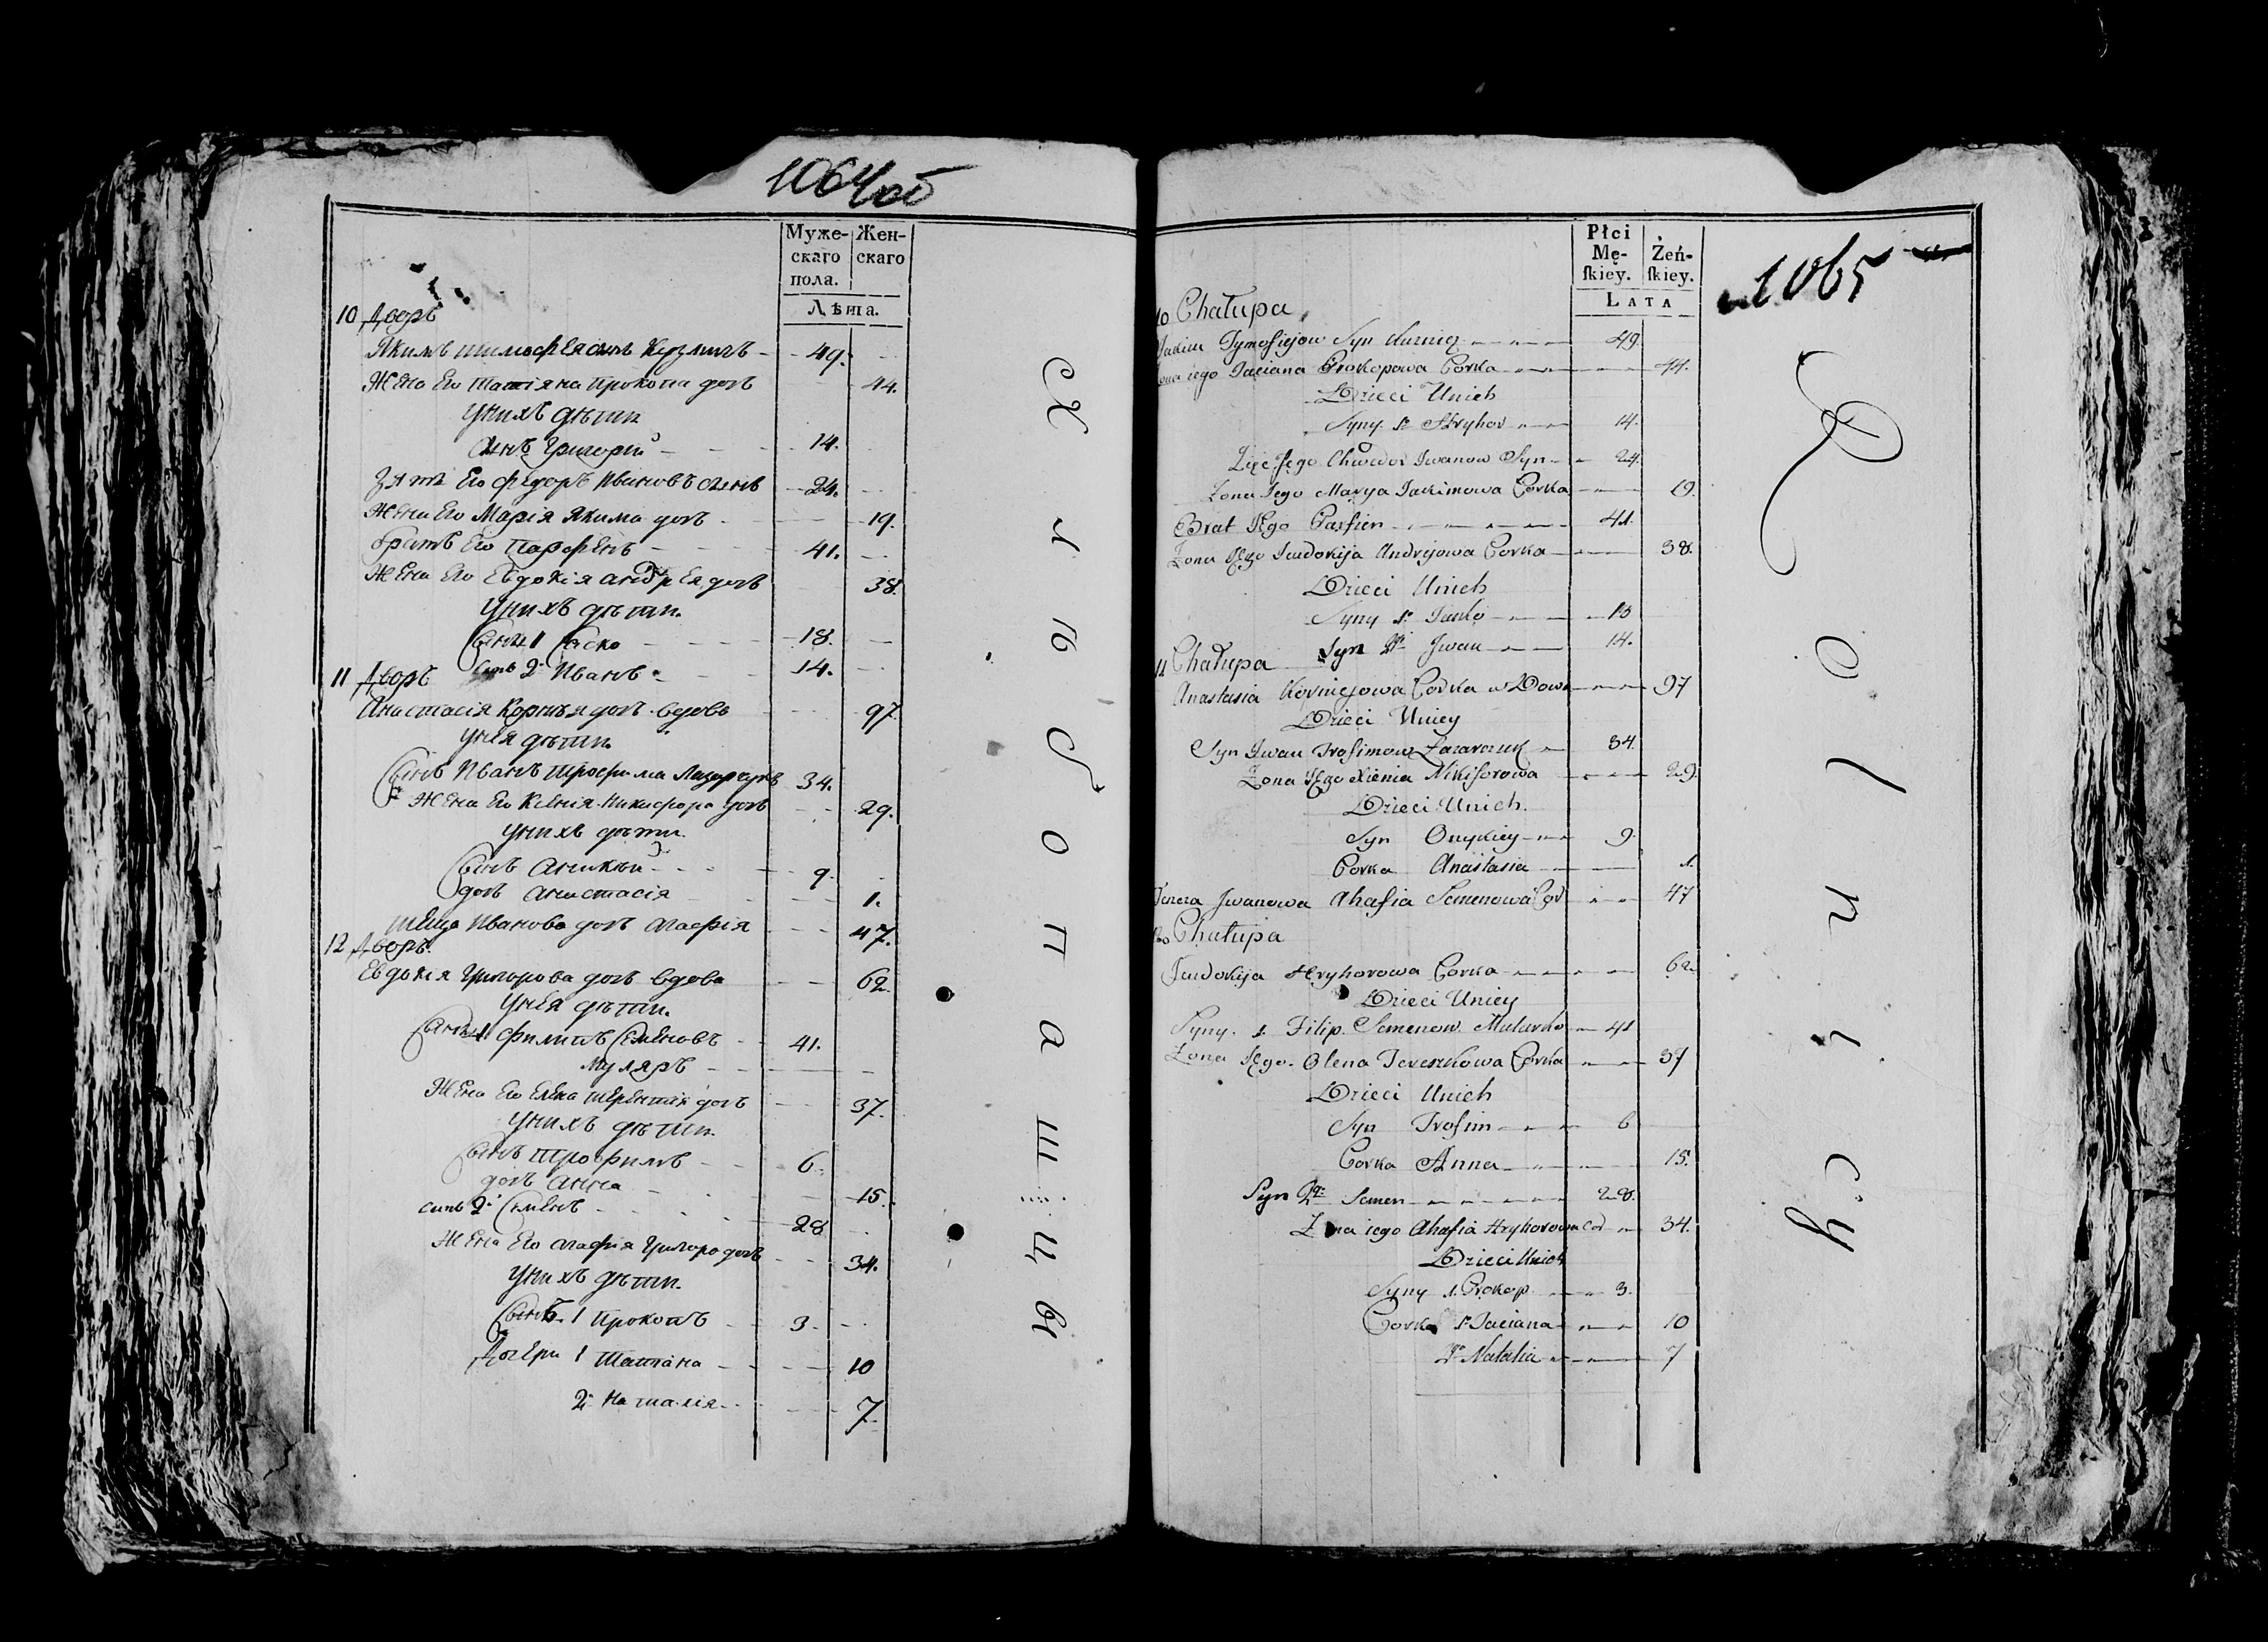 1064об
Муже-
скаго
пола.
Жен-
скаго
Лѣта.
10 Дворъ
Якимъ Тимофея сынъ Кузмичъ 49.
Жена Его Татіяна Прокопа дочь 44.
У нихъ дѣти
Сынъ Григорій 14.
Зять Его Федоръ Ивановъ сынъ 24.
Жена Его Марія Якима дочь 19.
Братъ Его Парфенъ 41.
Жена Его Евдокія Андрея дочь 38.
У нихъ дѣти.
Сыны 1 Саско 18.
Сынъ 2й Иванъ 14.
11 Дворъ
Анастасія Корнѣя дочь вдова 97.
У нея дѣти.
Сынъ Иванъ Трофима Лазарчукъ 34.
Жена Его Ксенія Никифора дочь 29.
У нихъ дѣти.
Сынъ Аникій 9.
дочь Анастасія 1.
Теща Иванова дочь Агафія 47.
12 Дворъ.
Евдокія Григорова дочь вдова 62.
У нея дѣти.
Сыны 1 Филипъ Семеновъ 41.
Муляръ
Жена Его Елена Терентія дочь 37.
У нихъ дѣти.
Сынъ Трофимъ 6.
дочь Анна 15.
сынъ 2й Семенъ 28
Жена Его Агафія Григора дочь 34.
У нихъ дѣти.
Сынъ 1 Прокопъ 3.
Дочери 1 Татіана 10
2я Наталія 7.
Хлѣбопашцы
Płci
Mę-
ſkiey.
Żeń-
ſkiey.
LATA
1065
10 Chałupa
Jakim Tymofiejow Syn Kuzmicz 49
Zona iego Taciana Prokopowa Corka 44.
Dzieci Unich
Syny 1 Hryhor 14.
Zięć Jego Chwedor Iwanow Syn 24.
Zona Jego Marya Jakimowa Corka 19.
Brat Jego Parfien 41.
Zona Jego Jewdokija Andryjowa Corka 38.
Dzieci Unich
Syny 1 18
Syn 2i Jwan 14.
11 Chałupa
Anastasia Korniejowa Corka wDowa 97
Dzieci Uniey
Syn Jwan Trofimow Lazarczuk 34.
Zona Jego Xienia Nikiforowa 29.
Dzieci Unich.
Syn Onykiey 9.
Corka Anastasia 1.
Jwanowa Ahafia Semenowa Cor 47
Chałupa
Jewdokija Hryhorowa Corka 62
Dzieci Uniey
Syny. 1. Filip Semenow 41
Zona Jego Olena Tereszkowa Corka 37
Dzieci Unich
Syn Trofim 6
Corka Anna 15.
Syn 2gi Semen 28.
Zona iego Ahafia Hryhorowna Cor 34.
Dzieci Unich
Syny 1. Prokop 3.
Corka 1 Taciana 10
2 Natalia 7
Rolnicy